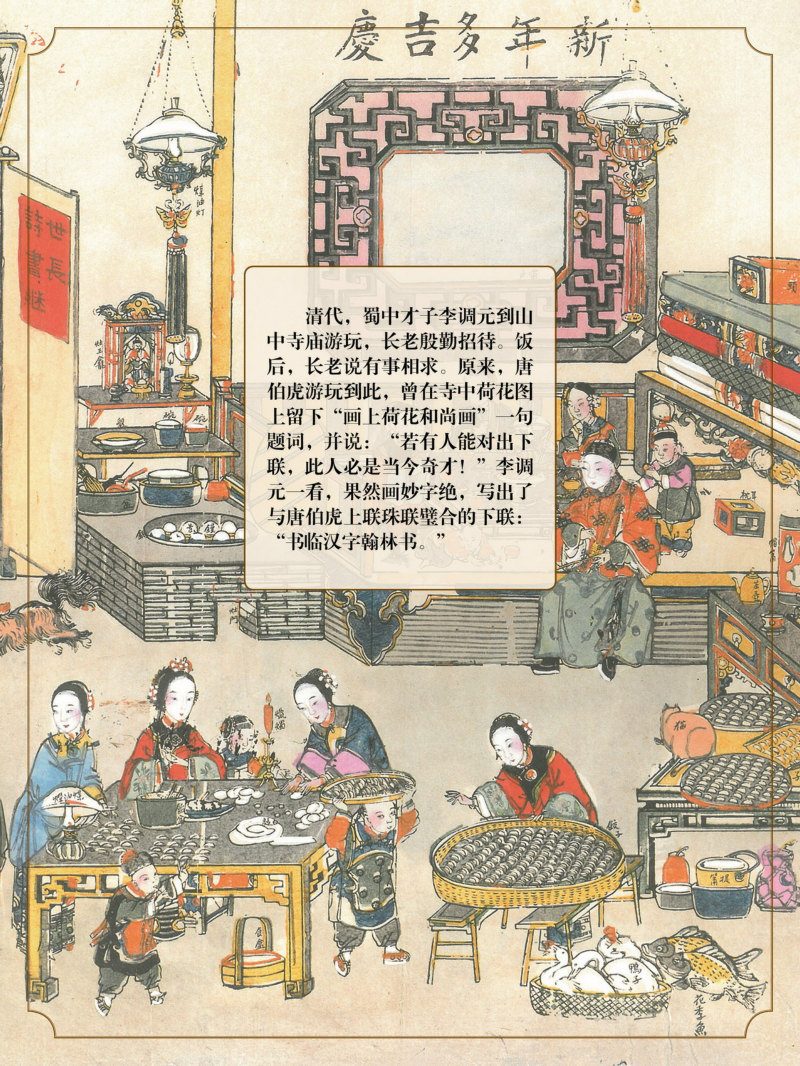 新年多吉慶
煤油灯
世長
詩書继
清代，蜀中才子李调元到山
中寺庙游玩，长老殷勤招待。饭
后，长老说有事相求。原来，唐
伯虎游玩到此，曾在寺中荷花图
上留下“画上荷花和尚画”一句
题词，并说：“若有人能对出下
联，此人必是当今奇才！”李调
元一看，果然画妙字绝，写出了
与唐伯虎上联珠联璧合的下联：
“书临汉字翰林书。”
猫
鴨子